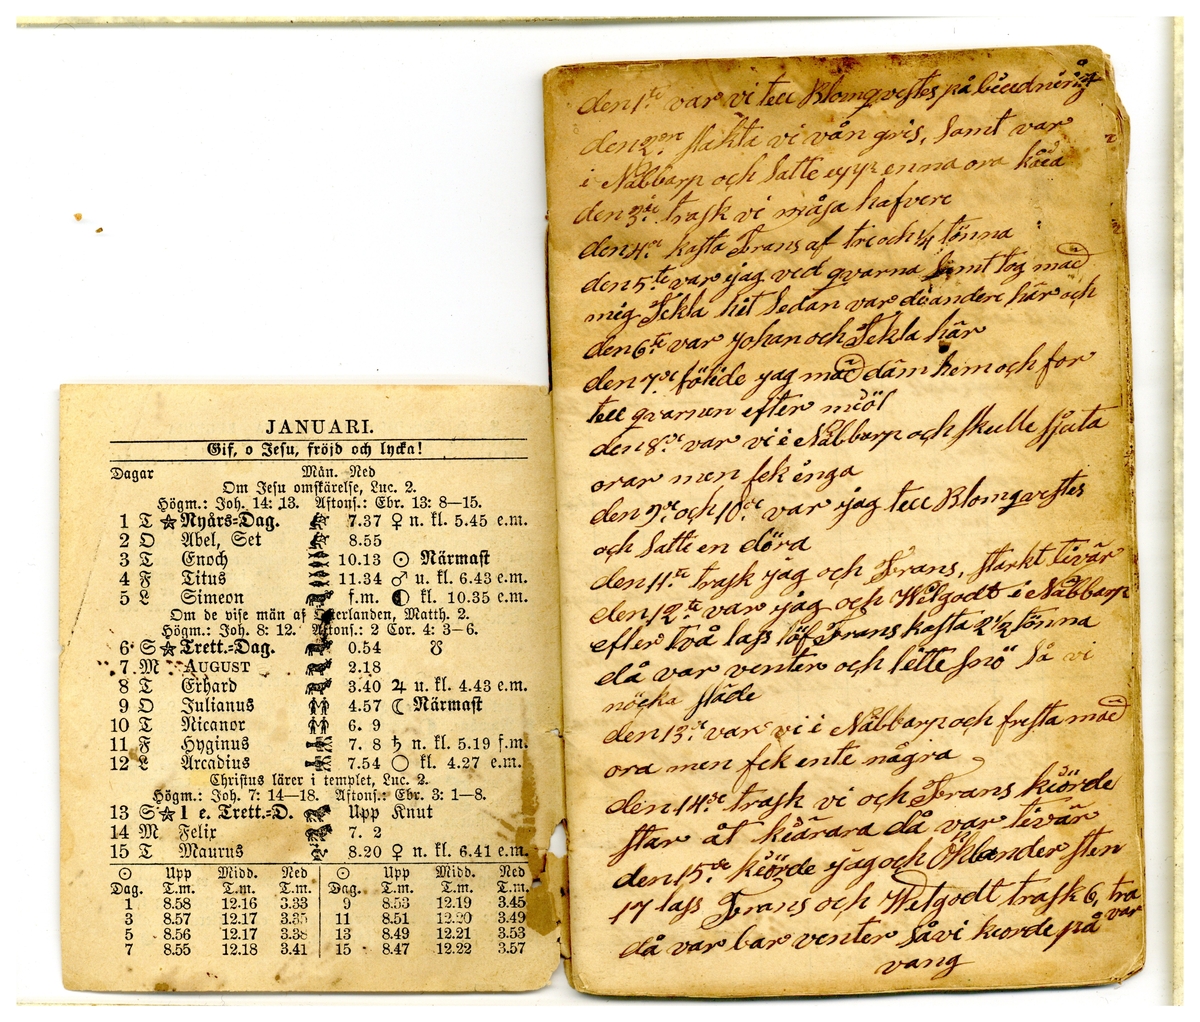 JANUARI.
Gif, o Jesu, fröjd och lycka!
Dagar Mån. Ned
Om Jesu omskärelse, Luc. 2.
Högm.: Joh. 14: 13. Aftons.: Ebr. 13: 8—15.
1 T Nyårs-Dag. 7.37 ♀ n. kl. 5.45 e.m.
2 O Abel, Set 8.55
3 T Enoch 10.13 ☉ Närmast
4 F Titus 11.34 ♂ u. kl. 6.43 e.m.
5 L Simeon f.m. kl. 10.35 e.m.
Om de vise män af Österlanden, Matth. 2.
Högm.: Joh. 8: 12. Aftons.: 2 Cor. 4: 3—6.
6 S Trett.-Dag. 0.54 ☋
7 M AUGUST 2.18
8 T Erhard 3.40 ♃ u. kl. 4.43 e.m.
9 O Julianus 4.57 ☾ Närmast
10 T Nicanor 6. 9
11 F Hyginus 7. 8 ♄ n. kl. 5.19 f.m.
12 L Arcadius 7.54 ○ kl. 4.27 e.m.
Christus lärer i templet, Luc. 2.
Högm.: Joh. 7: 14—18. Aftons.: Ebr. 3: 1—8.
13 S 1 e. Trett.-D. Upp Knut
14 M Felix 7. 2
15 T Maurus 8.20 ♀ n. kl. 6.41 e.m.
☉ Upp Midd. Ned ☉ Upp Midd. Ned
Dag. T.m. T.m. T.m. Dag. T.m. T.m. T.m.
1 8.58 12.16 3.33 9 8.53 12.19 3.45
3 8.57 12.17 3.35 11 8.51 12.20 3.49
5 8.56 12.17 3.38 13 8.49 12.21 3.53
7 8.55 12.18 3.41 15 8.47 12.22 3.57
den 1te var vi tell Blomqvistes på biudning
den 2re slakta vi vån gris, samt var
i Nabbarp och satte upp enna ora
den 3de trask vi håfvere
den 4de kasta Frans af tre och 1/4 tönna
den 5te var jag ved qvarna samt tog mad
mig Tekla hit sedan var de andere här och
den 6te var Johan och Tekla här
den 7de jag mad däm hem och for
tell qvarnen efter miöl
den 8de var vi i Nabbarp och skulle sjuta
orar men fek enga
den 9de och 10de var jag tell Blomqvestes
och satte en döra
den 11te trask jag och Frans, starkt tivär
den 12te var jag och Wilgodt i Nabbarp
efter två lass löf Frans kasta 2 1/2 tönna
då var venter och lette snö så vi
nöcka släde
den 13de var vi i Nabbarp och fresta mad
ora men fek ente några
den 14de trask vi och Frans kiörde
star åt kiärara då var tivär
den 15de kiörde jag och Öhlander sten
17 lass Frans och Wilgodt trask 6, tra
då var bar venter så vi kiorde på var
vang